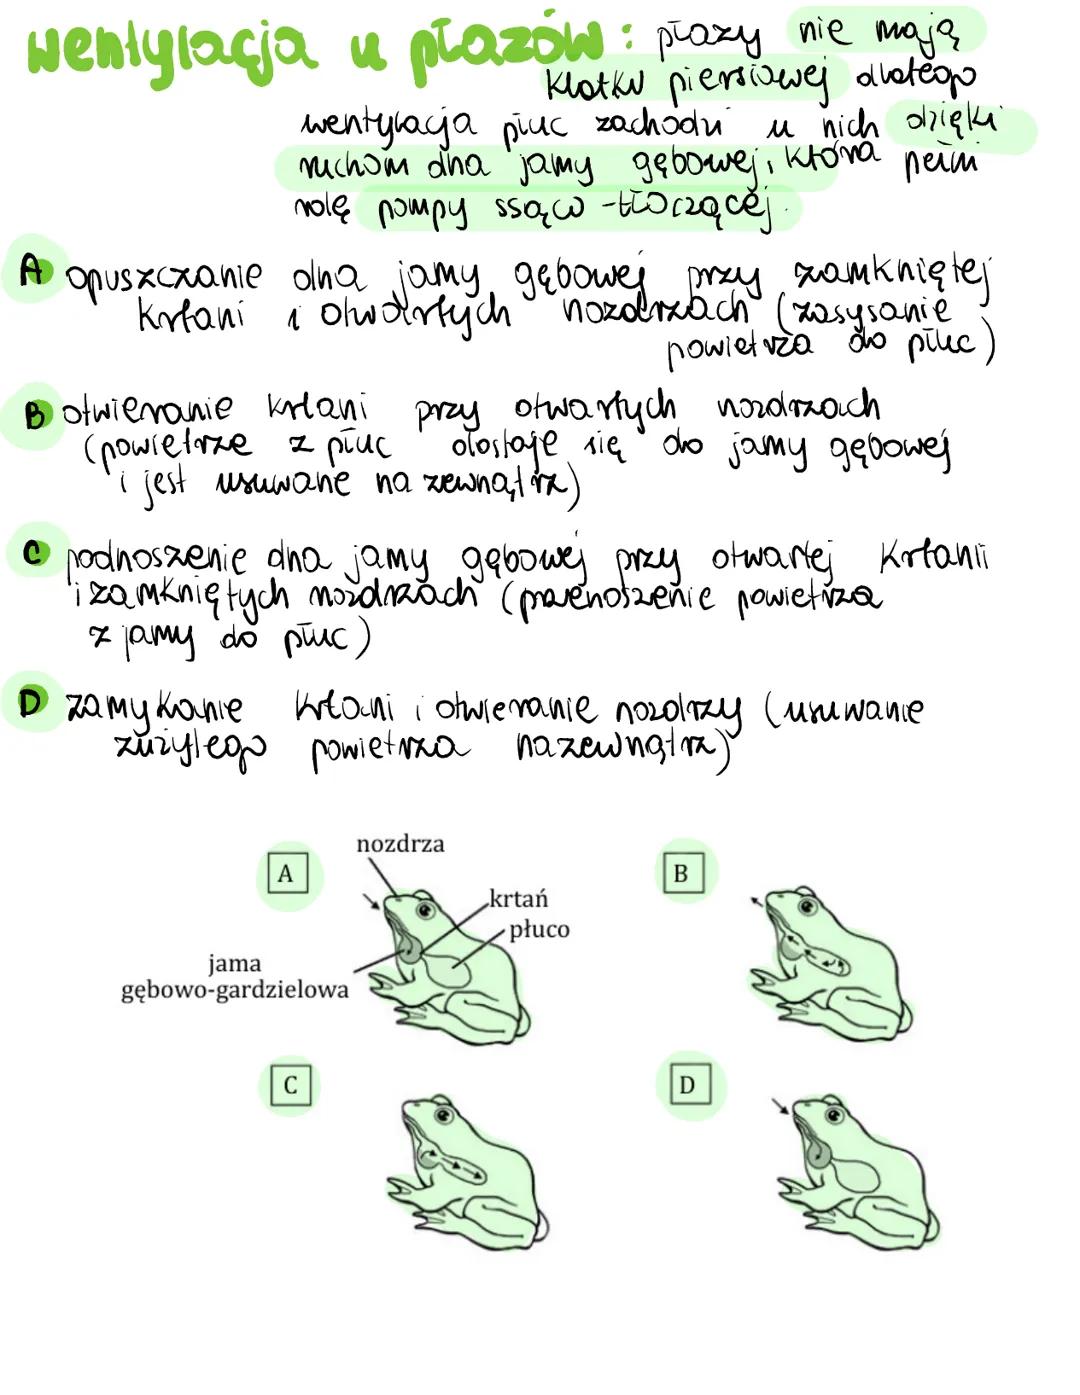 wentylacja u płazów: płazy nie mają
klatki piersiowej dlatego
wentylacja płuc zachodzi u nich dzięki
ruchom dna jamy gębowej, która pełni
rolę pompy ssąco-tłoczącej.
A opuszczanie dna jamy gębowej przy zamkniętej
krtani i otwartych nozdrzach (zasysanie
powietrza do płuc)
B otwieranie krtani przy otwartych nozdrzach
(powietrze z płuc dostaje się do jamy gębowej
i jest usuwane na zewnątrz)
C podnoszenie dna jamy gębowej przy otwartej krtanii
i zamkniętych nozdrzach (przenoszenie powietrza
z jamy do płuc)
D zamykanie krtani i otwieranie nozdrzy (usuwanie
zużytego powietrza nazewnątrz)
nozdrza
A
B
krtań
płuco
jama
gębowo-gardzielowa
C
D